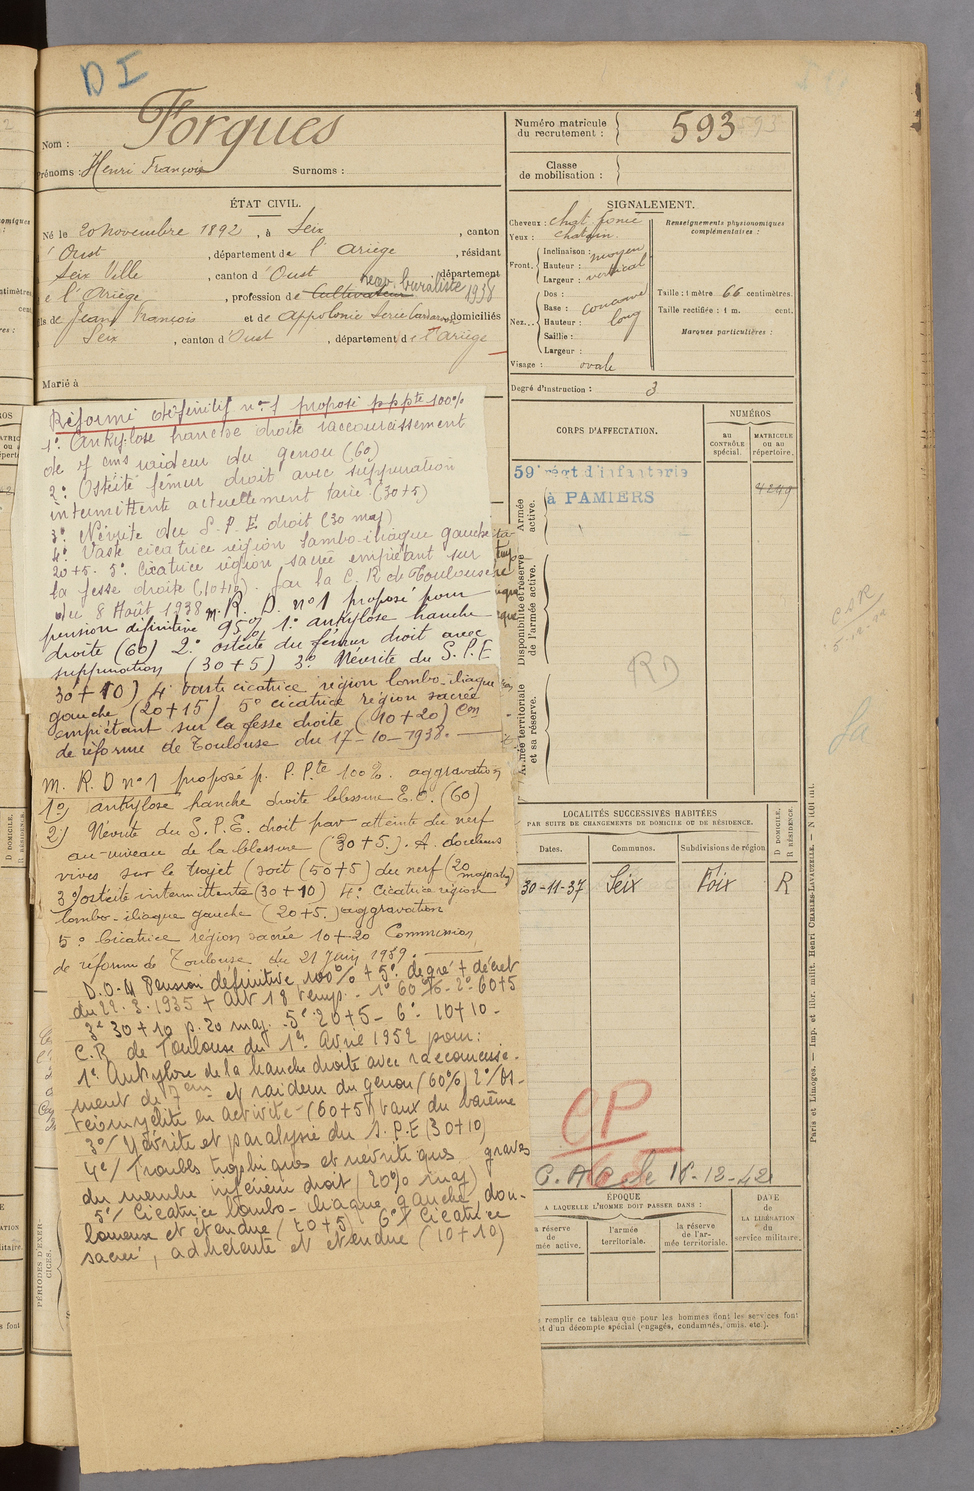 D I
Nom : Forgues
Prénoms : Henri François Surnoms :
Numéro matricule du recrutement : 593
Classe de mobilisation :
ÉTAT CIVIL.
Né le 20 Novembre 1892, à Seix, canton
d'Oust, département de l'Ariège, résidant
Seix Ville, canton d'Oust, département
de l'Ariège, profession de Cultivateur buraliste 1938
fils de Jean François et de Appolonie domiciliés
Seix, canton d'Oust, département de l'Ariège
Marié à
SIGNALEMENT.
Cheveux : chat. foncé
Yeux : chatain
Front. Inclinaison : moyen
Hauteur : vertical
Largeur :
Nez... Dos :
Base : concave
Hauteur : long
Saillie :
Largeur :
Visage : ovale
Renseignements physionomiques complémentaires :
Taille : 1 mètre 66 centimètres.
Taille rectifiée : 1 m. cent.
Marques particulières :
Degré d'instruction : 3
Réformé définitif n° 1 proposé pppte 100%
1° Ankylose hanche droite raccourcissement
de 7 cms raideur du genou (60)
2° Ostéite fémur droit avec suppuration
intermittente actuellement tarie (30+5)
3° Névrite du S.P.E. droit (30 maj)
4° Vaste cicatrice région lombo-iliaque gauche
20+5. 5° Cicatrice région sacrée empiétant sur
la fesse droite (10+10) par la C.R de Toulouse
du 8 Août 1938. M. R. D. n°1 proposé pour
pension définitive 95% 1° ankylose hanche
droite (60) 2° ostéite du fémur droit avec
suppuration (30+5) 3° Névrite du S.P.E
30+10) 4° vaste cicatrice région lombo-iliaque
gauche (20+15) 5° cicatrice région sacrée
empiétant sur la fesse droite (10+20) Con
de réforme de Toulouse du 17-10-1938.
M. R. D n°1 proposé p. P.Pte 100%. aggravation
1°) ankylose hanche droite blessure E.O. (60)
2°) Névrite du S.P.E. droit par atteinte du nerf
au niveau de la blessure (30+5). A. douleurs
vives sur le trajet (soit (50+5) du nerf (20
3°) ostéite intermittente (30+10) 4° Cicatrice région
lombo-iliaque gauche (20+5.) aggravation
5° Cicatrice région sacrée 10+20 Commission
de réforme de Toulouse du 21 juin 1939.
D.O.4 Pension définitive 100% + 5° degré + décret
du 22.3.1935 + art 18 temp. - 1° 60% - 2° 60+5
3° 30+10 p. 20 maj. - 5° 20+5 - 6° 10+10 -
C.R. de Toulouse du 1er Avril 1952 pour :
1° Ankylose de la hanche droite avec raccourcisse-
ment de 7 cm et raideur du genou (60%) 2°/ Os-
téomyélite en activité - (60+5) taux du barème
3°/ Névrite et paralysie du S.P.E (30+10)
4°/ Troubles trophiques et névritiques graves
du membre inférieur droit (20% maj)
5°/ Cicatrice lombo-iliaque gauche dou-
loureuse et étendue (20+5) 6°/ Cicatrice
sacrée, adhérente et étendue (10+10)
CORPS D'AFFECTATION.
NUMÉROS
au CONTRÔLE spécial.
MATRICULE ou au répertoire.
59e régt d'infanterie
à PAMIERS
4249
Armée active.
Disponibilité et réserve de l'armée active.
Armée territoriale et sa réserve.
RD
LOCALITÉS SUCCESSIVES HABITÉES
PAR SUITE DE CHANGEMENTS DE DOMICILE OU DE RÉSIDENCE.
Dates. Communes. Subdivisions de région D DOMICILE. R RÉSIDENCE.
30-11-37 Seix Foix R
CP
68
ÉPOQUE
A LAQUELLE L'HOMME DOIT PASSER DANS :
la réserve de l'armée active.
l'armée territoriale.
la réserve de l'armée territoriale.
DATE de LA LIBÉRATION du service militaire.
remplir ce tableau que pour les hommes dont les services font
et d'un décompte spécial (engagés, condamnés, omis, etc.).
Paris et Limoges. — Imp. et libr. milit. Henri CHARLES-LAVAUZELLE.
PÉRIODES D'EXERCICES.